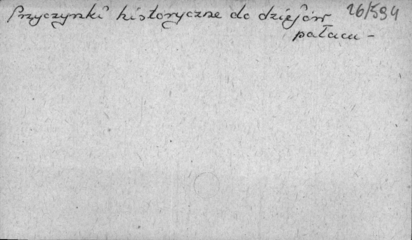 Przyczynki historyczne do dziejów 26/594
pałacu -